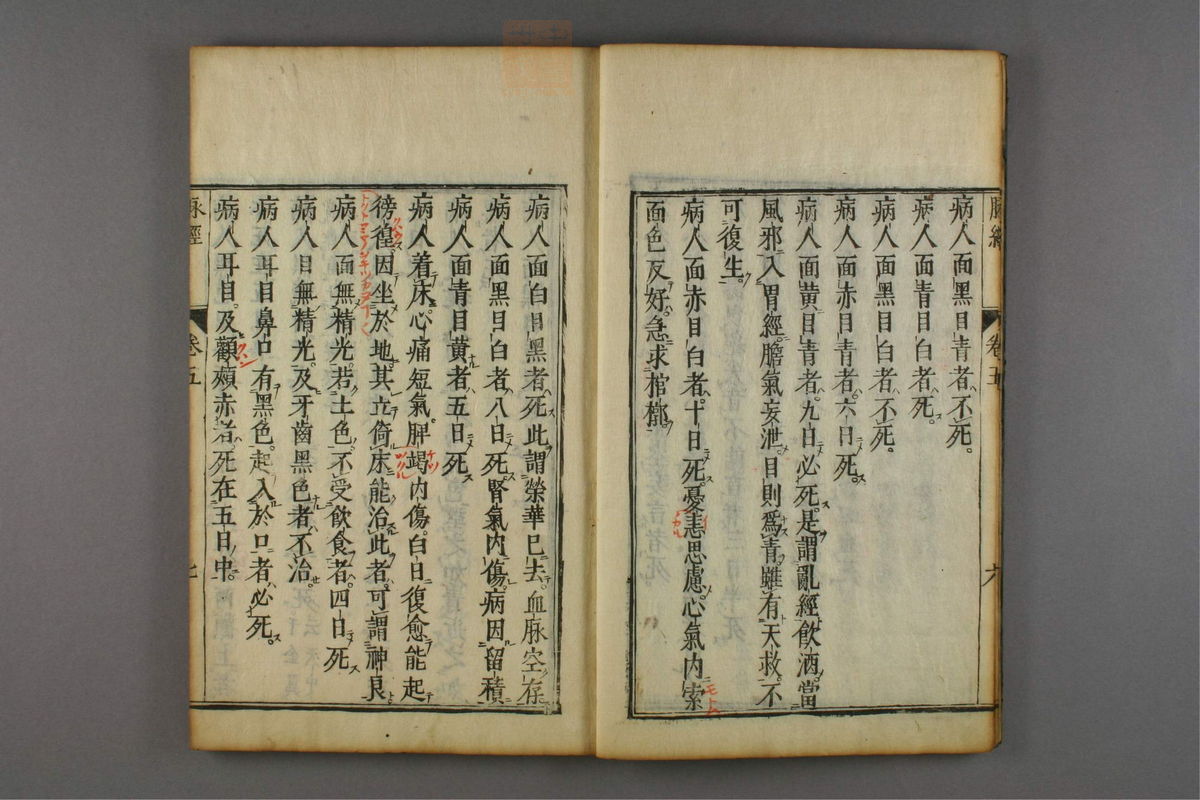 病人面黑目青者不死。
病人面青目白者死。
病人面黑目白者不死。
病人面赤目青者六日死。
病人面黃目青者。九日必死。是謂亂經。飲酒當
風。邪入胃經。膽氣妄泄。目則爲青。雖有天救。不
可復生。
病人面赤目白者。十日死。憂恚思慮。心氣內索
面色反好。急求棺槨。
病人面白目黑者死。此謂榮華已去。血脉空存
病人面黑目白者。八日死。腎氣內傷。病因留積
病人面青目黃者。五日死
病人着床。心痛短氣。脾竭內傷。百日復愈。能起
徬徨。因坐於地。其立倚床。能治此者。可謂神良
病人面無精光。若土色。不受飲食者。四日死
病人目無精光。及牙齒黑色者。不治。
病人耳目鼻口有黑色。起入於口者。必死。
病人耳目。及顴頰赤者。死在五日中。
卷五
六
脉經
卷五
七